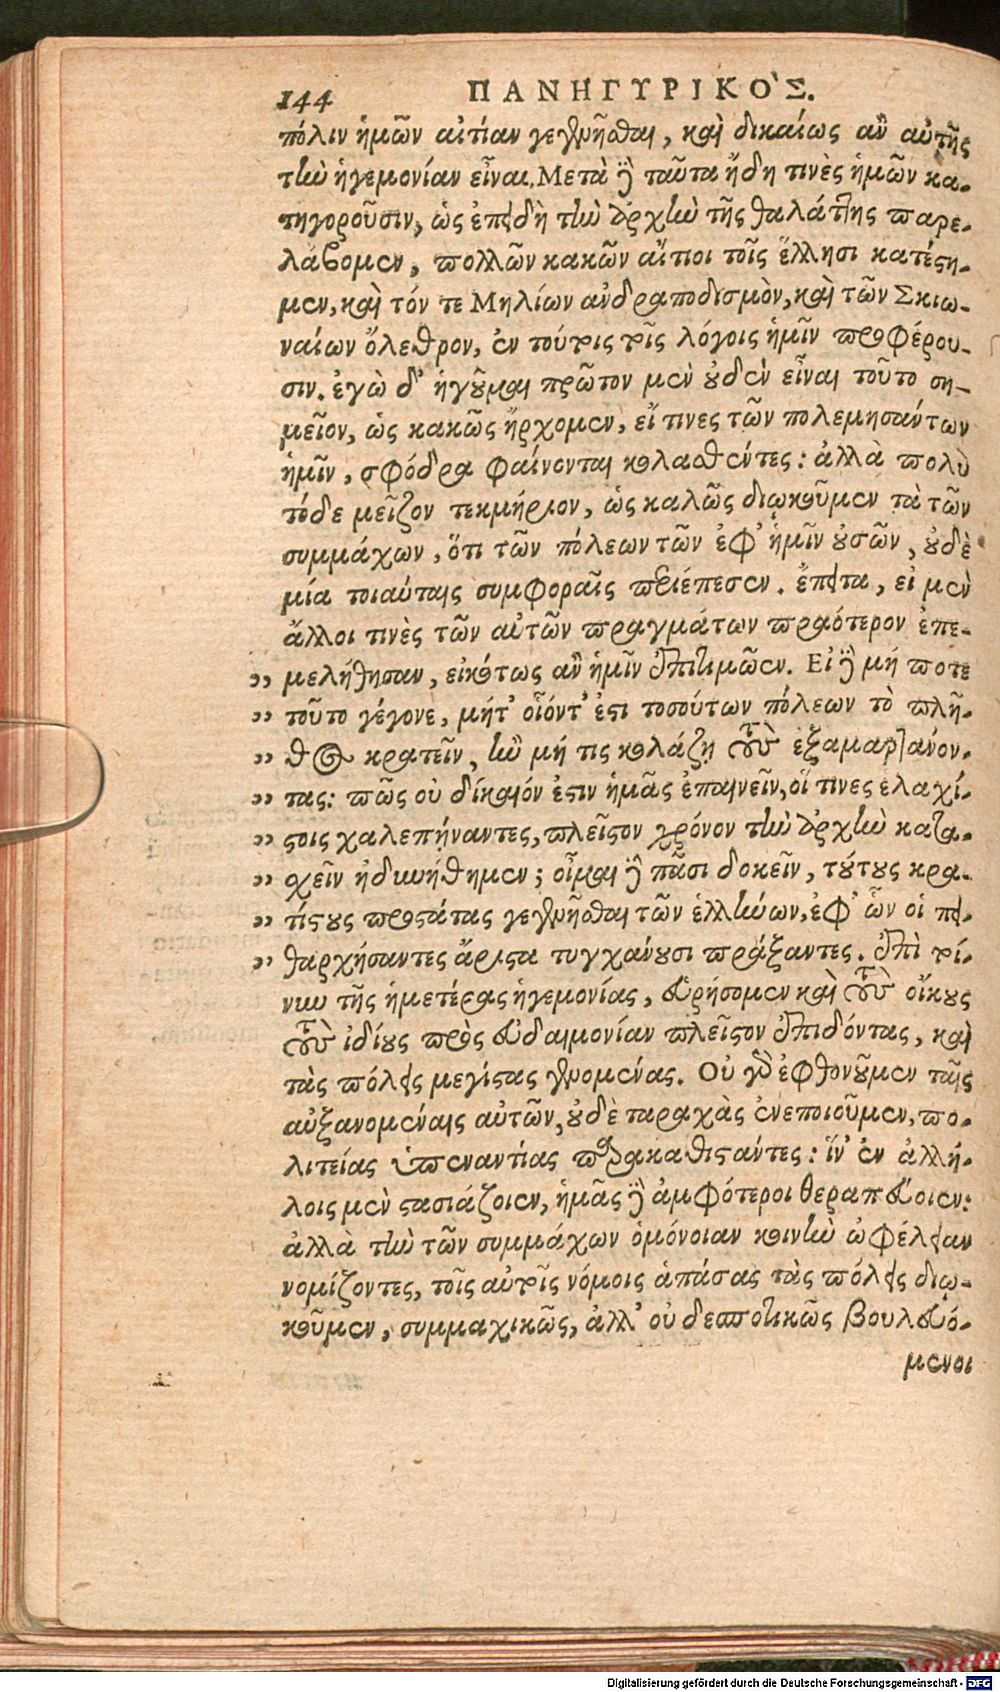 144 ΠΑΝΗΓΥΡΙΚΟ`Σ.
πόλιν ἡμῶν αἰτίαν γεγνῆσθαι, καὶ δικαίως ἂν αὐτῆς
τὴν ἡγεμονίαν εἶναι. Μετὰ δὲ ταῦτα ἤδη τινὲς ἡμῶν κα-
τηγοροῦσιν, ὡς ἐπειδὴ τὴν ἀρχὴν τῆς θαλάττης παρε-
λάβομεν, πολλῶν κακῶν αἴτιοι τοῖς ἕλλησι κατέστη-
μεν, καὶ τόν τε Μηλίων ἀνδραποδισμὸν, καὶ τῶν Σκιω-
ναίων ὄλεθρον, ἐν τούτοις τοῖς λόγοις ἡμῖν προφέρου-
σιν. ἐγὼ δ' ἡγοῦμαι πρῶτον μὲν οὐδὲν εἶναι τοῦτο ση-
μεῖον, ὡς κακῶς ἤρχομεν, εἴ τινες τῶν πολεμησάντων
ἡμῖν, σφόδρα φαίνονται κολασθέντες: ἀλλὰ πολὺ
τόδε μεῖζον τεκμήριον, ὡς καλῶς διῳκοῦμεν τὰ τῶν
συμμάχων, ὅτι τῶν πόλεων τῶν ἐφ' ἡμῖν οὐσῶν, οὐδὲ
μία τοιαύταις συμφοραῖς περιέπεσεν. ἔπειτα, εἰ μὲν
ἄλλοι τινὲς τῶν αὐτῶν πραγμάτων πραότερον ἐπε-
,, μελήθησαν, εἰκότως ἂν ἡμῖν ἐπιτιμῶεν. Εἰ δὲ μή ποτε
,, τοῦτο γέγονε, μήτ' οἷόντ' ἐστι τοσούτων πόλεων τὸ πλῆ-
,, θος κρατεῖν, ἢν μή τις κολάζῃ τοὺς ἐξαμαρτάνον-
,, τας: πῶς οὐ δίκαιόν ἐστιν ἡμᾶς ἐπαινεῖν, οἵ τινες ἐλαχί-
,, στοις χαλεπήναντες, πλεῖστον χρόνον τὴν ἀρχὴν κατα-
,, σχεῖν ἠδυνήθημεν; οἶμαι δὲ πᾶσι δοκεῖν, τούτους κρα-
,, τίστους προστάτας γεγνῆσθαι τῶν ἑλλήνων, ἐφ' ὧν οἱ πει-
,, θαρχήσαντες ἄριστα τυγχάνουσι πράξαντες. Ἐπὶ τοί-
νυν τῆς ἡμετέρας ἡγεμονίας, εὑρήσομεν καὶ τοὺς οἴκους
τοὺς ἰδίους πρὸς εὐδαιμονίαν πλεῖστον ἐπιδόντας, καὶ
τὰς πόλεις μεγίστας γενομένας. Οὐ γὰρ ἐφθονοῦμεν ταῖς
αὐξανομέναις αὐτῶν, οὐδὲ ταραχὰς ἐνεποιοῦμεν, πο-
λιτείας ὑπεναντίας παρακαθιστάντες: ἵν' ἐν ἀλλή-
λοις μὲν στασιάζοιεν, ἡμᾶς δὲ ἀμφότεροι θεραπεύοιεν:
ἀλλὰ τὴν τῶν συμμάχων ὁμόνοιαν κοινὴν ὠφέλειαν
νομίζοντες, τοῖς αὐτοῖς νόμοις ἁπάσας τὰς πόλεις διῳ-
κοῦμεν, συμμαχικῶς, ἀλλ' οὐ δεσποτικῶς βουλευό-
μενοι
Digitalisierung gefördert durch die Deutsche Forschungsgemeinschaft - DFG